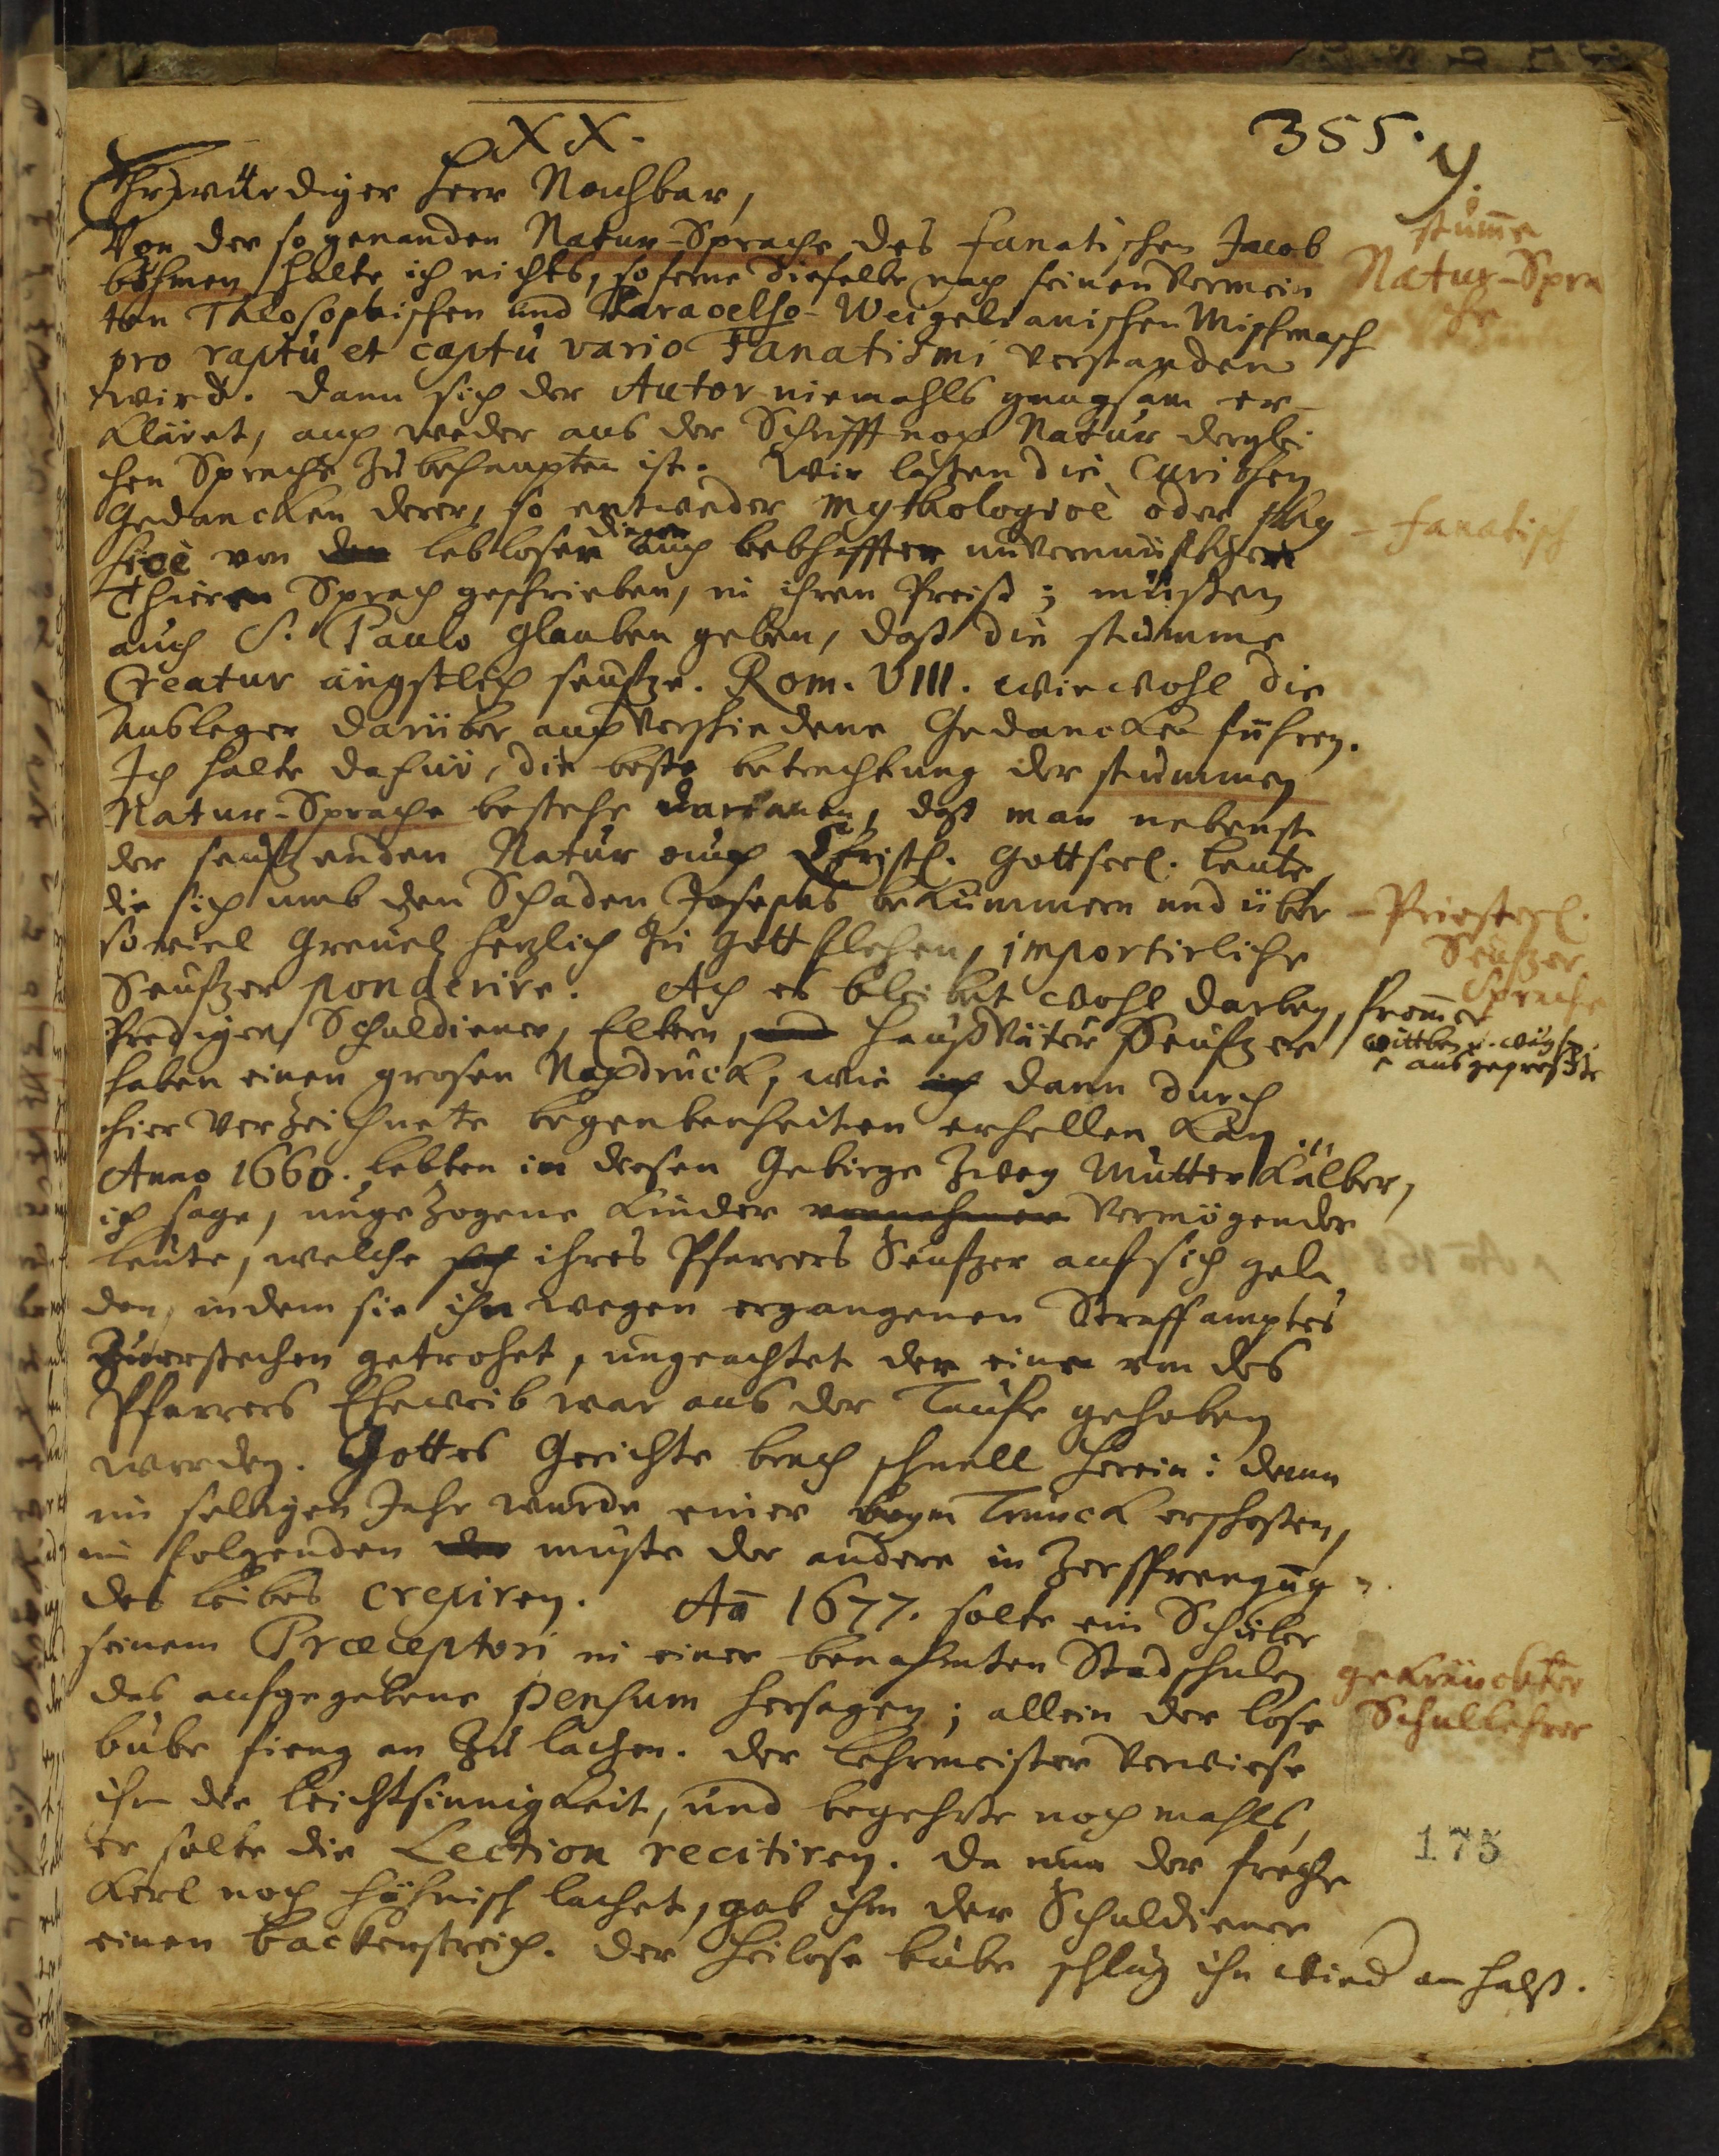 XX.
355.
y.
Ehrwürdiger Herr Nachbar,
Von der so genanden Natur-Sprache des fanatischen Jacob
böhmen halte ich nichts, so ferne dieselbe nach seinen Vermein
ten Theosophischen und Paracelso-Weigelianischen Mischmasch
pro raptu et captu vario Fanatismi verstanden
wird. dann sich der Autor niemahls gnugsam er-
kläret, auch weder aus der Schrifft noch Natur dergli
chen Sprache zu behaupten ist. Wir laßen die Curiosen
Gedancken derer, so entweder mythologicè oder phy
sicè von den leblosen dingen auch lebhafften unvernünfftigen
Thieren Sprach geschrieben, in ihren Preiß; müßen
auch S. Paulo glauben geben, daß die stumme
Creatur ängstlich seufze. Rom. VIII. wiewohl die
Ausleger darüber auch verschiedene Gedancken führen.
Ich halte dafür, die beste betrachtung der stummen
Natur-Sprache bestehe darinnen, daß man nebenst
der seufzenden Natur auch Christl. Gottseel. leute,
die sich umb den Schaden Josephs bekümmern und über
so viel Greuel herzlich zu Gott flehen, importirliche
Seufzer ponderire. Ach es bleibet wohl darbey,
Prediger, Schuldiener, Eltern, und Hauß Väter Seufzer
haben einen grosen Nachdruck, wie ich dann durch
hier verzeichnete begenbenheiten erhellen kan.
Anno 1660. lebten in diesen Gebirge zwey Mutter Kälber,
ich sage, ungezogene Kinder vornehmer Vermögender
leute, welche sich ihres Pfarrers Seufzer auf sich gela
den, indem sie ihn wegen ergangenen Straffamptes
zuerstechen getrohet, ungeachtet der eine von des
Pfarrers Eheweib war aus der Taufe gehoben
worden. Gottes Gerichte brach schnell herein: denn
im selbigen Jahr wurde einer beym Trunck erschoßen,
im folgenden der muste der andere in Zersprengung
des leibes crepiren. Aō 1677. solte ein Schüler
seinem Præceptori in einer benahmten Stadschulen
das aufgegebene pensum hersagen; allein der lose
bube fieng an zu lachen. der Lehrmeister verwiese
ihm die leichtsinnigkeit, und begehrte noch mahls,
er solte die Lection recitiren. da nun der freche
Kerl noch höhnisch lachet, gab ihm der Schuldiener
einen backenstreich. der heilose bube schlug ihn wied am halß.
stum̄e
Natur-Spra
che
- fanatisch
- Priesterl.
Seufzer
Sprache
from̄er
wittben u. wäysen
ausgepreßte
gekränckter
Schullehrer
175